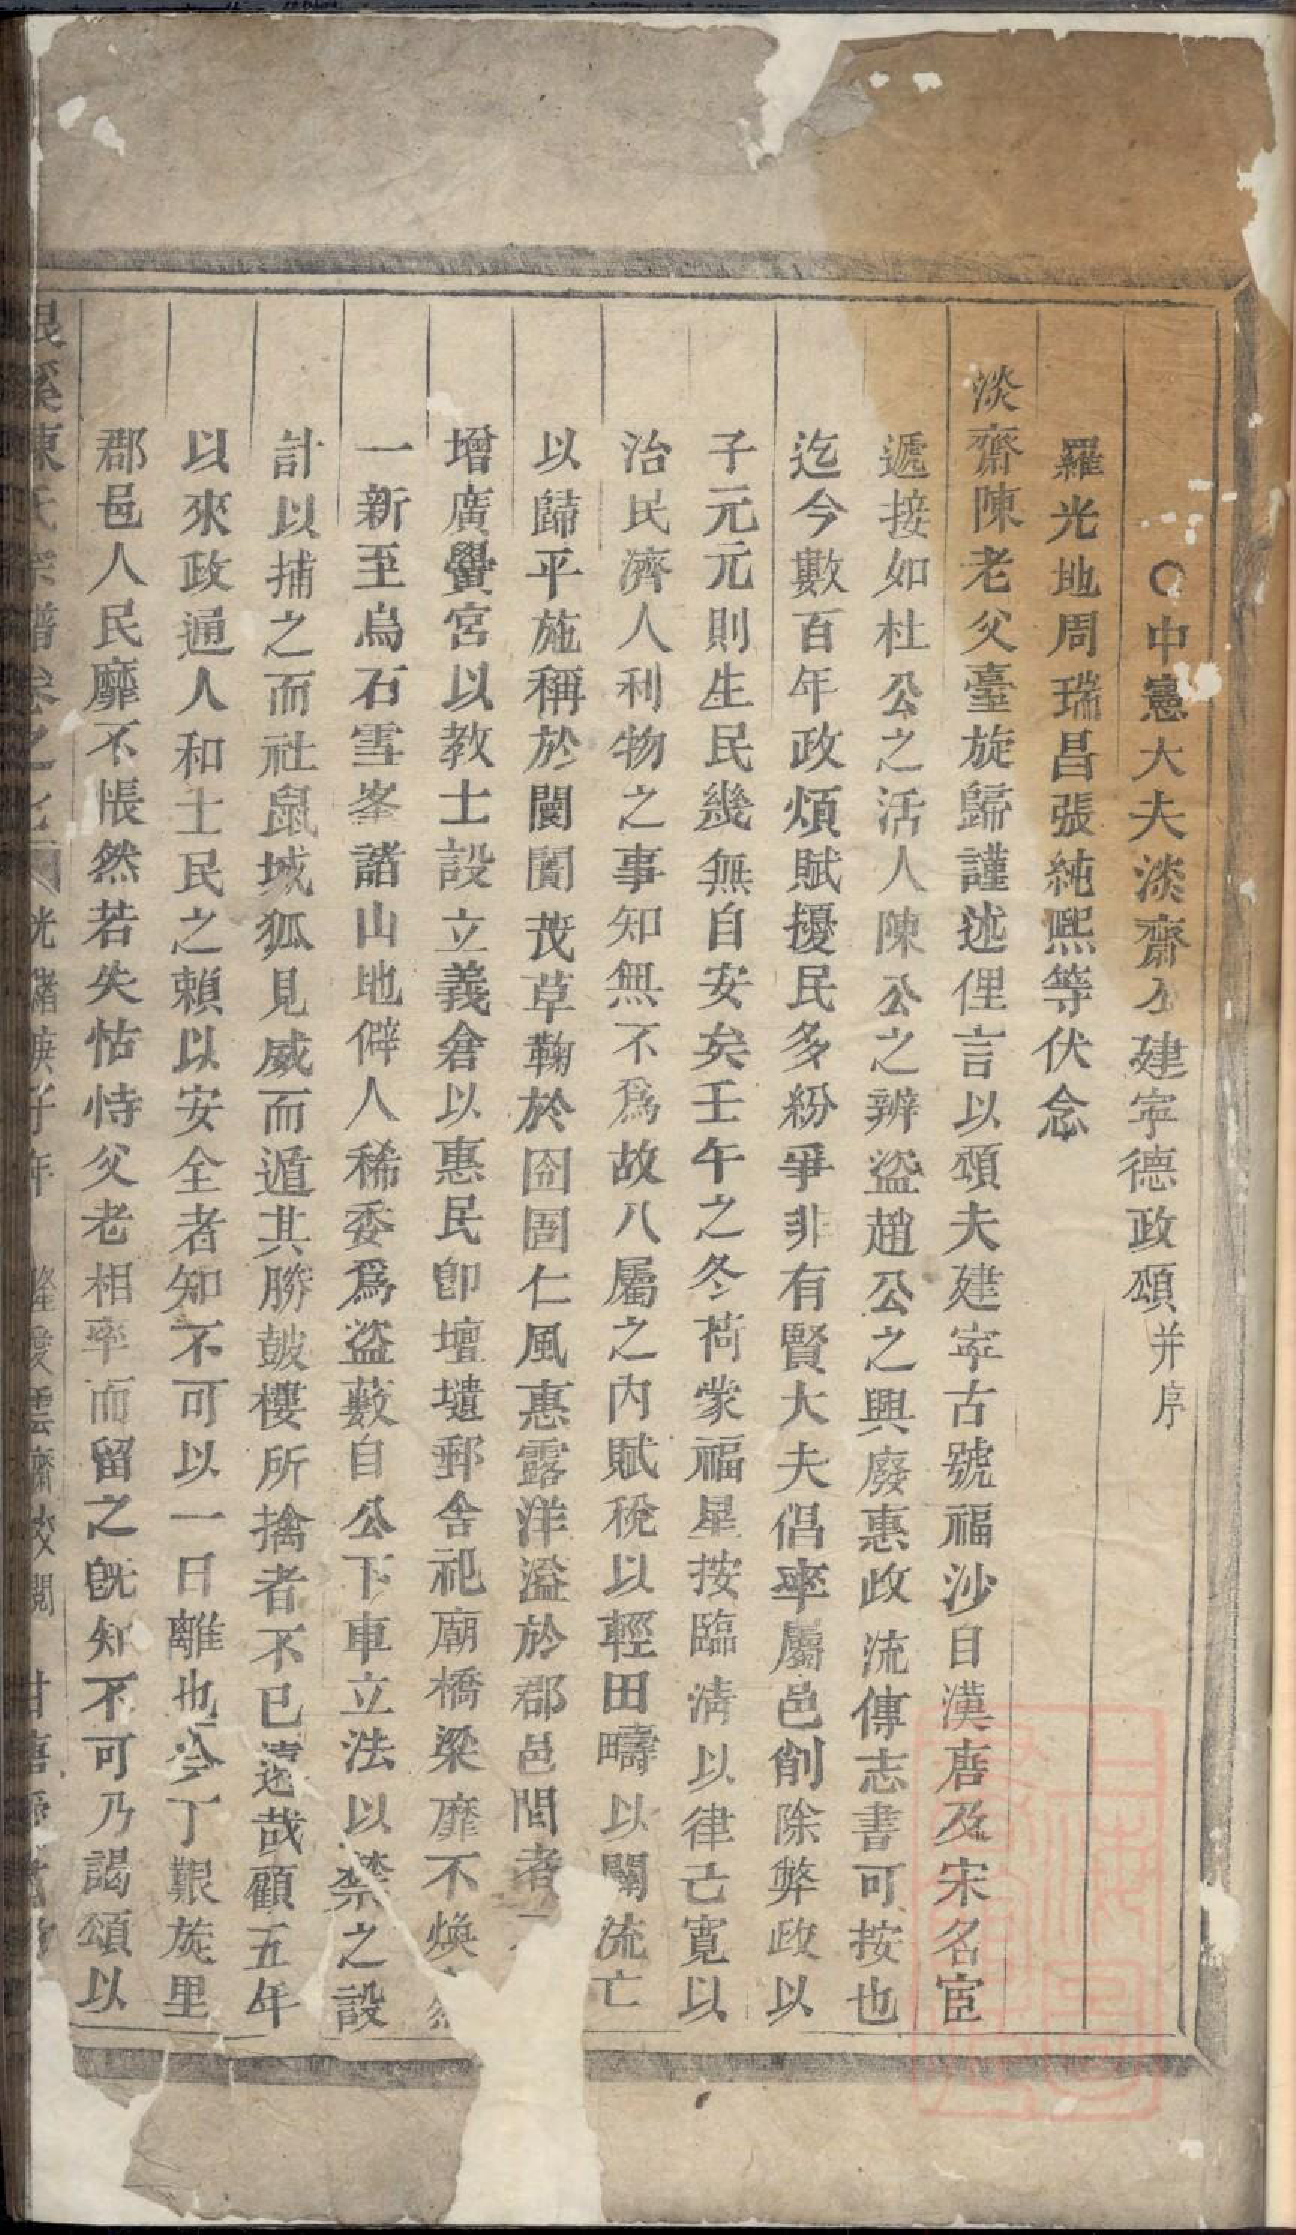 ○中憲大夫淡齋公建寕德政頌并序
羅光地周瑞昌張純熙等伏念
淡齋陳老父臺旋歸謹述俚言以頌夫建寕古號福沙自漢唐及宋名宦
遞接如杜公之活人陳公之辦盜趙公之興廢惠政流傳志書可按也
迄今數百年政煩賦擾民多紛爭非有賢大夫倡率屬邑削除弊政以
子元元則生民幾無自安矣壬午之冬荷蒙福星按臨清以律己寬以
治民濟人利物之事知無不爲故八屬之內賦稅以輕田疇以闢流亡
以歸平施稱於闤闠茂草鞠於囹圄仁風惠露洋溢於郡邑間者
增廣黌宮以教士設立義倉以惠民卽壇壝郵舍祀廟橋梁靡不煥
一新至烏石雪峯諸山地僻人稀委爲盜藪自公下車立法以禁之設
計以捕之而社鼠城狐見威而遁其勝皷樓所擒者不已遠哉顧五年
以來政通人和士民之賴以安全者知不可以一日離也今丁艱旋里
郡邑人民靡不悵然若失怙恃父老相率而留之旣知不可乃謁頌以
陳氏宗譜卷之七 光緒庚子年